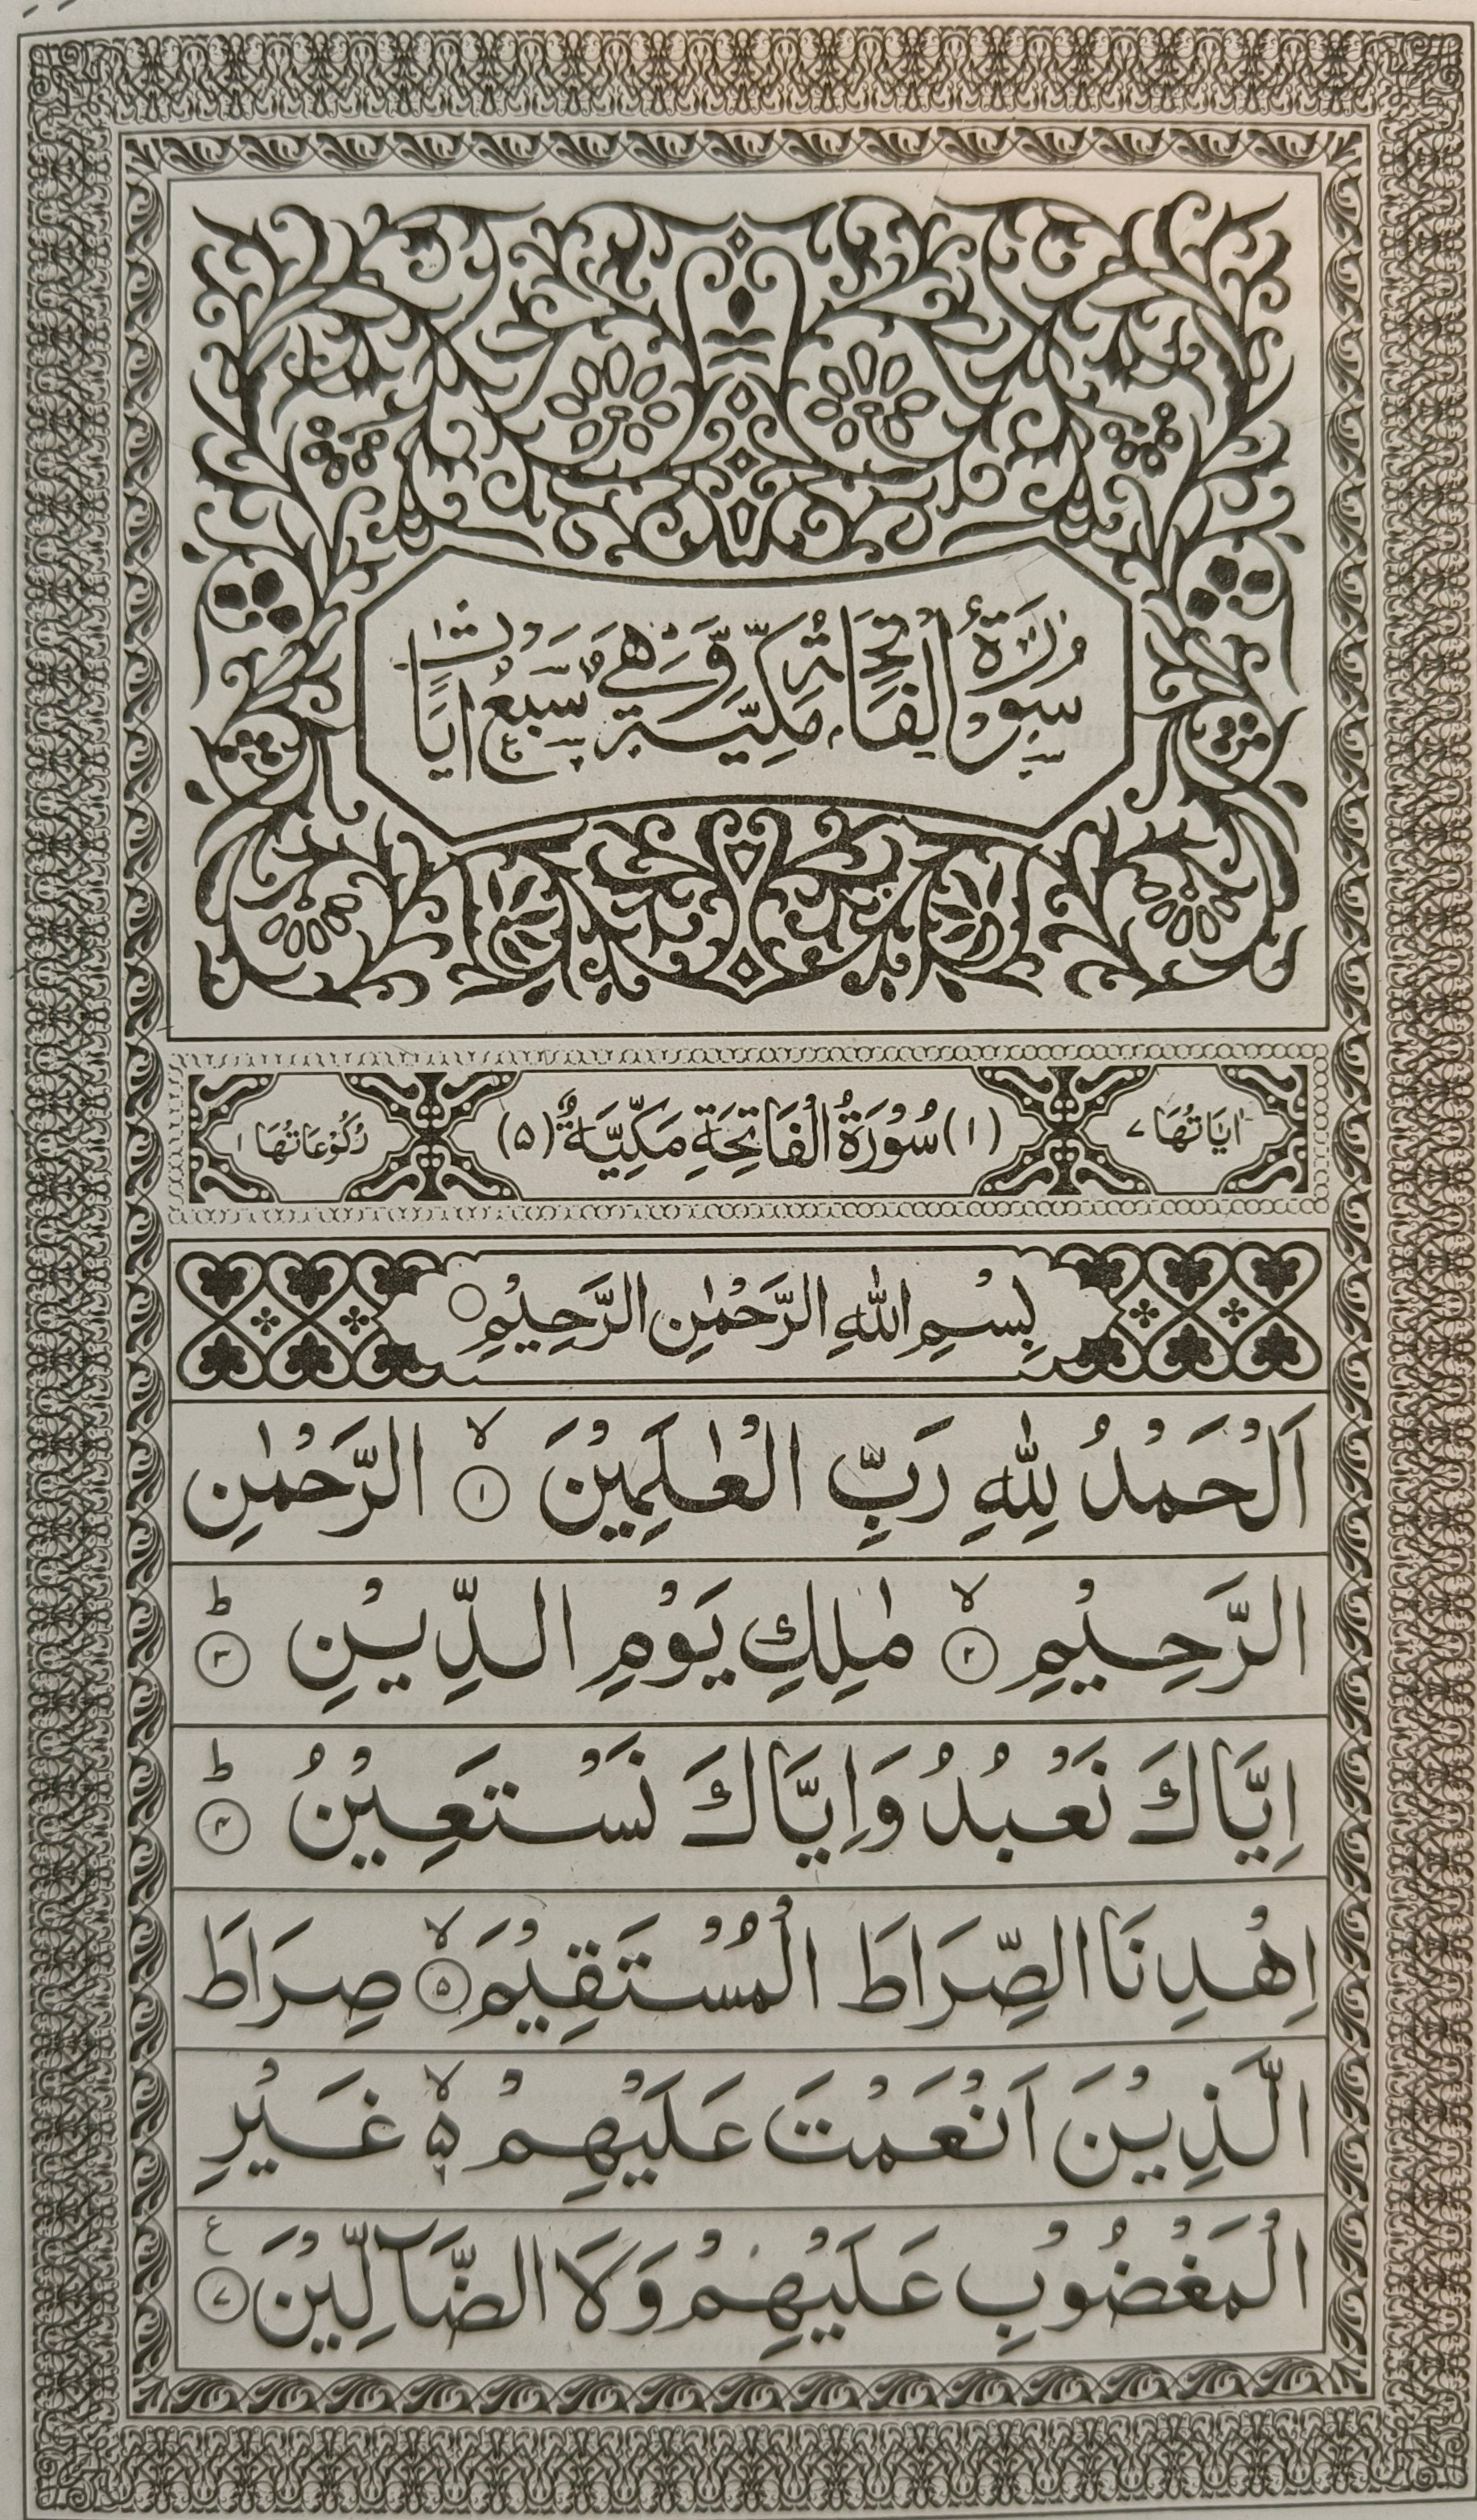 سُوْرَةُ الْفَاتِحَةِ مَكِّيَّةٌ وَّهِيَ سَبْعُ اٰيَاتٍ
اٰيَاتُهَا ۷
(۱) سُوْرَةُ الْفَاتِحَةِ مَكِّيَّةٌ (۵)
رُكُوْعَاتُهَا ۱
بِسْمِ اللّٰهِ الرَّحْمٰنِ الرَّحِيْمِ ○
اَلْحَمْدُ لِلّٰهِ رَبِّ الْعٰلَمِيْنَ ۙ ۱ الرَّحْمٰنِ
الرَّحِيْمِ ۙ ۲ مٰلِكِ يَوْمِ الدِّيْنِ ؕ ۳
اِيَّاكَ نَعْبُدُ وَاِيَّاكَ نَسْتَعِيْنُ ؕ ۴
اِهْدِنَا الصِّرَاطَ الْمُسْتَقِيْمَ ۙ ۵ صِرَاطَ
الَّذِيْنَ اَنْعَمْتَ عَلَيْهِمْ ۙ۬ۙ غَيْرِ
الْمَغْضُوْبِ عَلَيْهِمْ وَلَا الضَّآلِّيْنَ ۷ ع